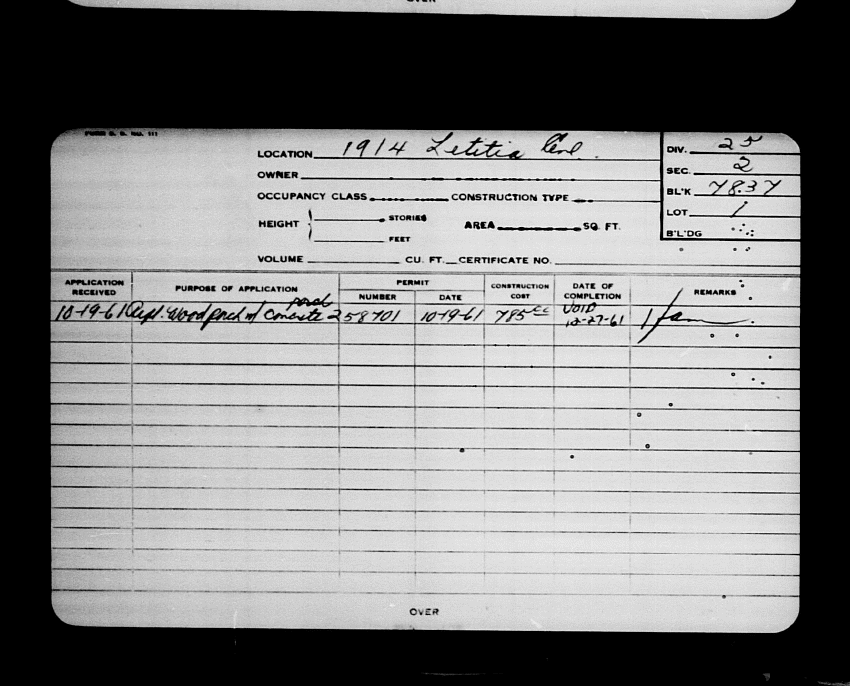 OVER
FORM B. D. NO. 111
LOCATION 1914 Letitia Ave.
OWNER
OCCUPANCY CLASS CONSTRUCTION TYPE
HEIGHT STORIES AREA SQ. FT.
FEET
VOLUME CU. FT. CERTIFICATE NO.
DIV. 25
SEC. 2
BL'K 7837
LOT 1
B'L'DG
APPLICATION RECEIVED PURPOSE OF APPLICATION PERMIT NUMBER DATE CONSTRUCTION COST DATE OF COMPLETION REMARKS
10-19-61 Repl. Wood porch w/ Concrete porch 258701 10-19-61 785 VOID 12-27-61
OVER